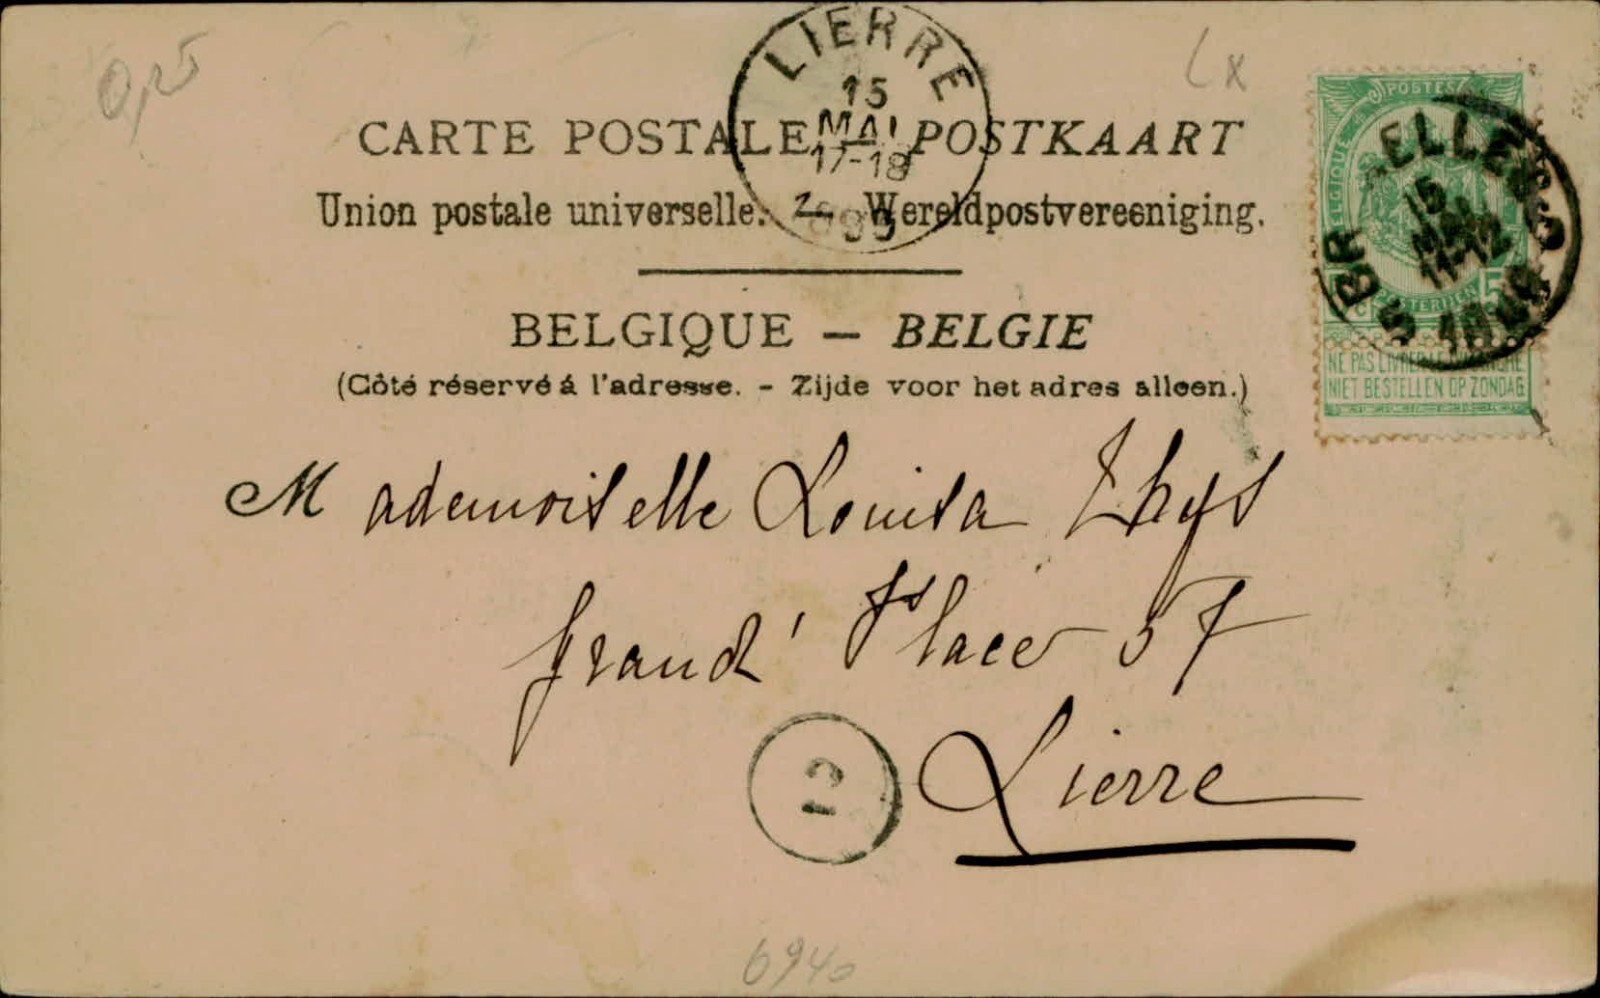 0,25
LX
LIERRE
15
MAI
17-18
1899
POSTES
BELGIQUE
POSTERIJEN
5
15
MAI
11-12
NE PAS LIVRER LE DIMANCHE
NIET BESTELLEN OP ZONDAG
CARTE POSTALE — POSTKAART
Union postale universelle. — Wereldpostvereeniging.
BELGIQUE — BELGIE
(Côté réservé á l'adresse. - Zijde voor het adres alleen.)
Mademoiselle Louisa Thys
Grand' Place 57
Lierre
6940